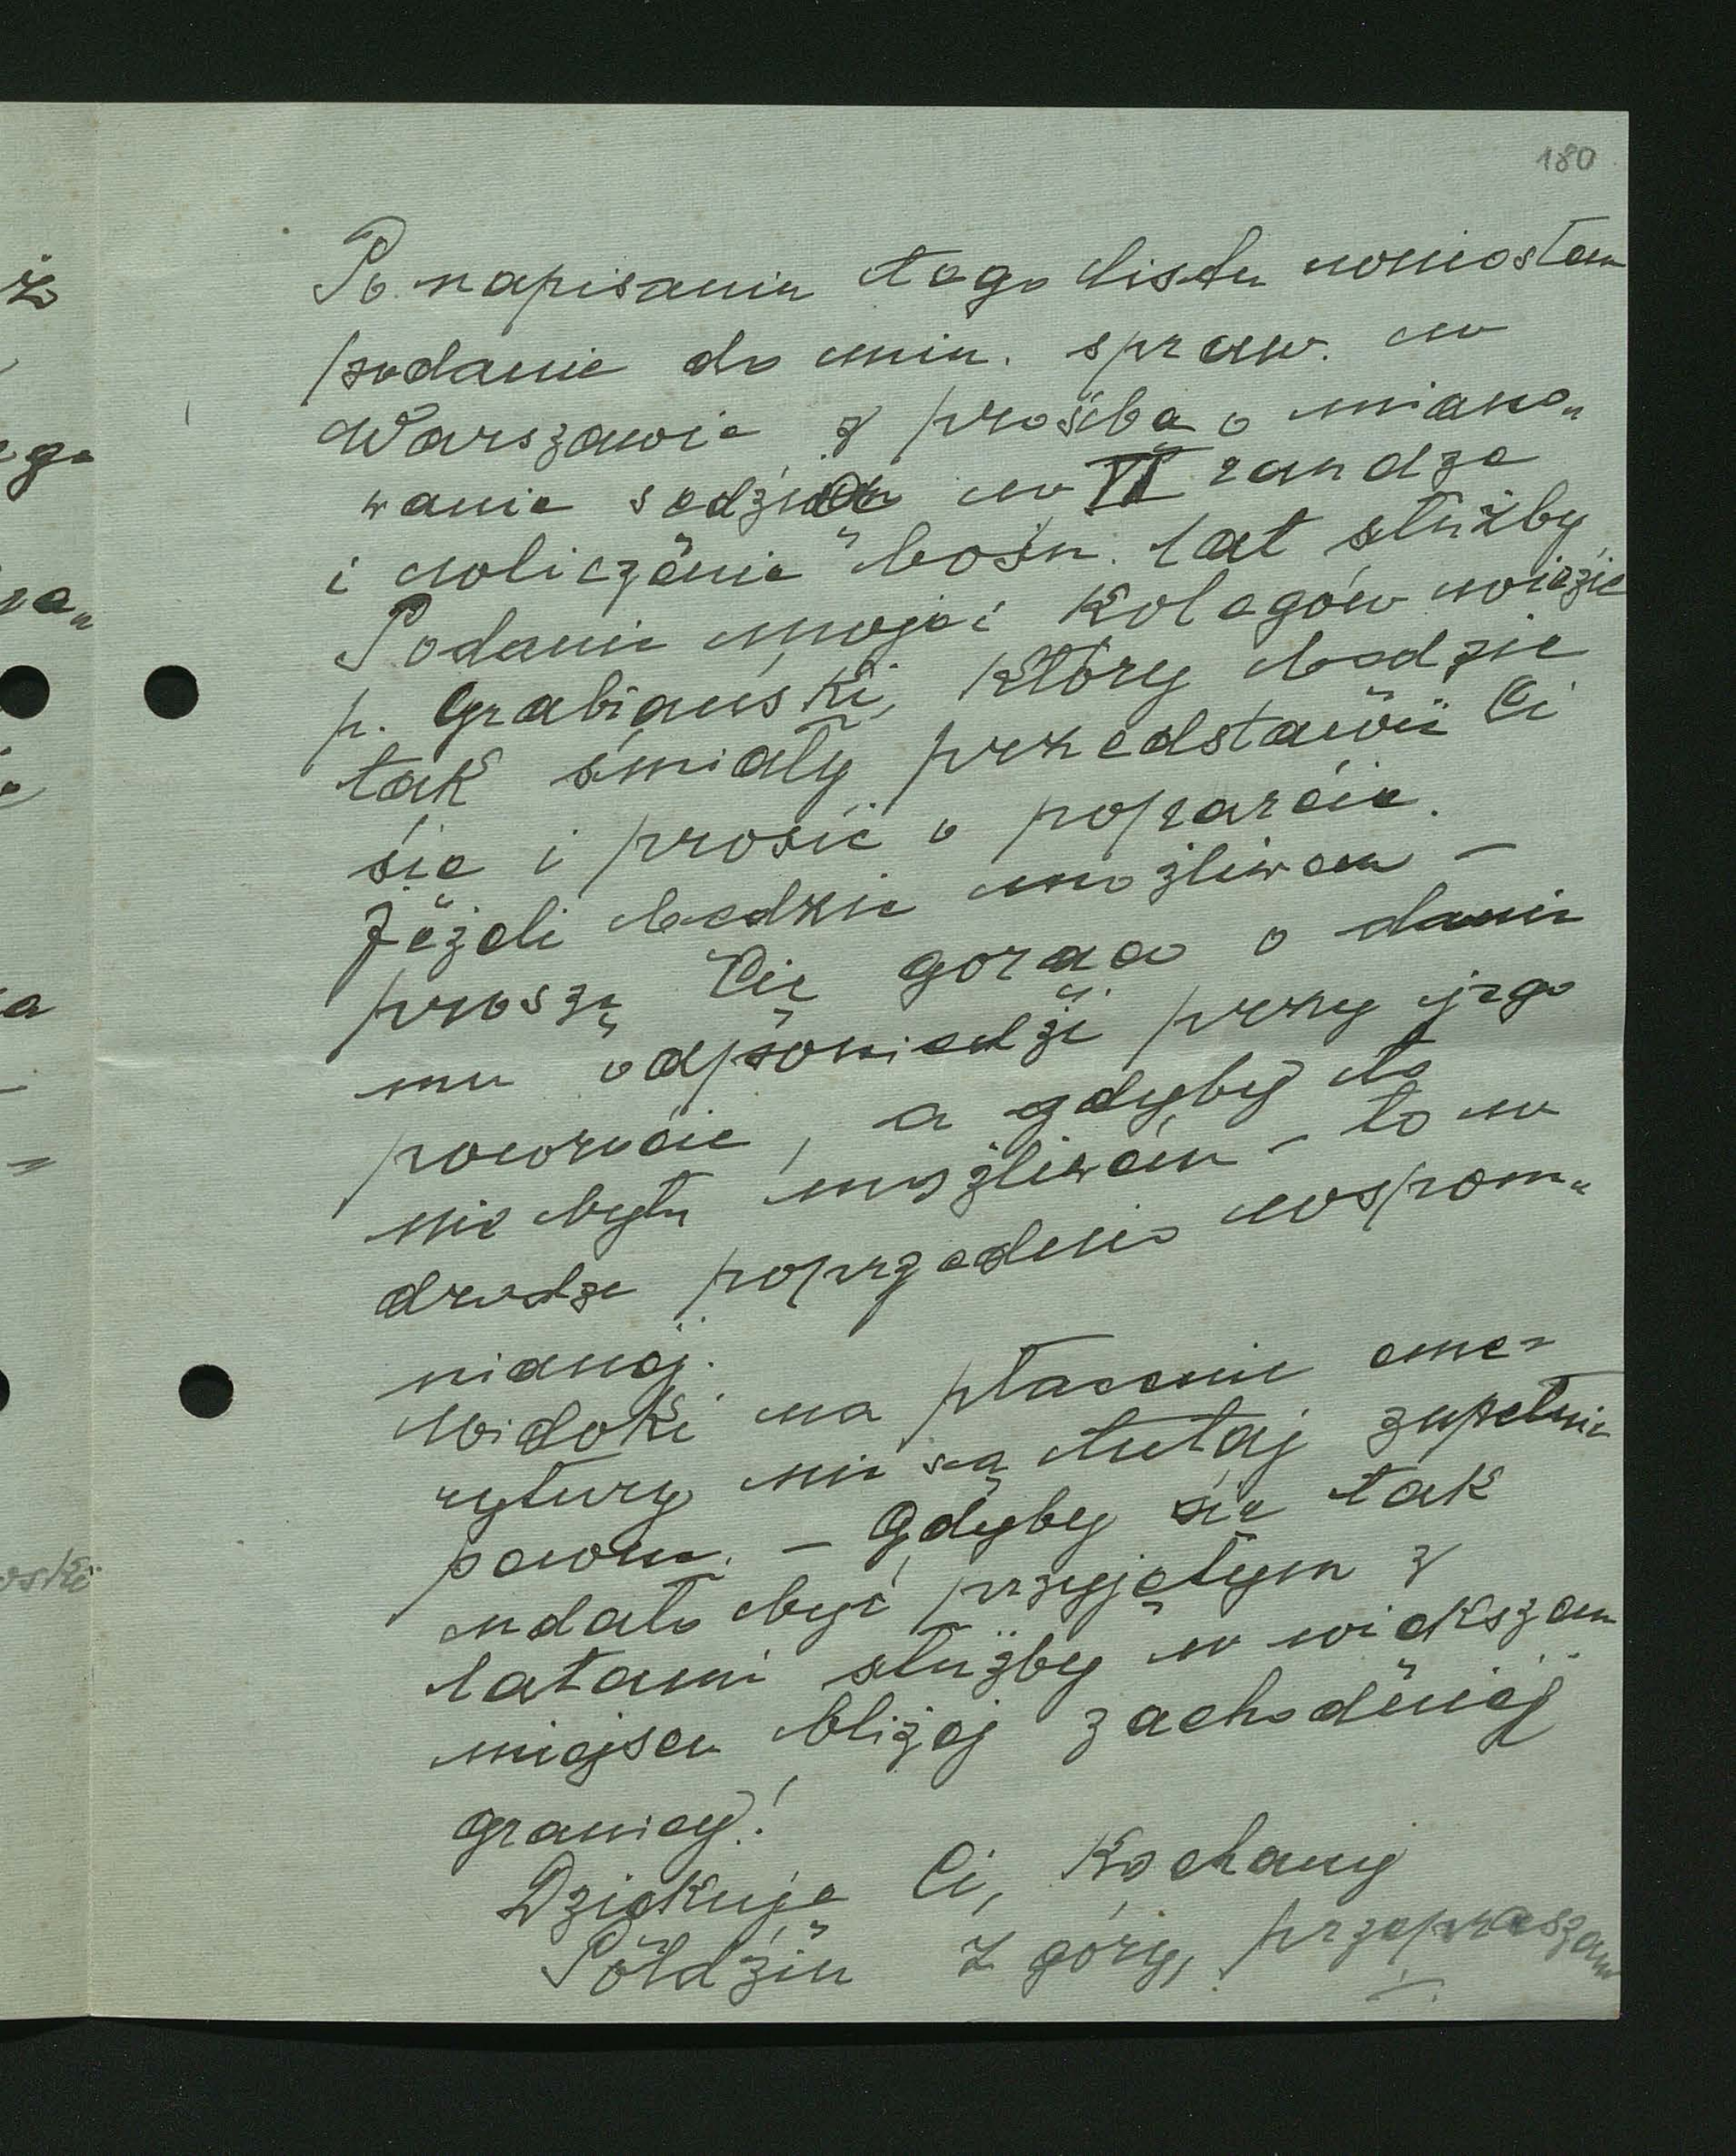 180
Po napisaniu tego listu wniosłem
podanie do min. spraw. w
Warszawie z prośbą o miano„
wanie sędzią w VI randze
i wliczenie bośn. lat służby
Podanie moje i kolegów wiezie
p. Grabiański, który będzie
tak śmiały przedstawić Ci
się i prosić o poparcie.
Jeżeli będzie możliwem –
proszę Cię gorąco o danie
mu odpowiedzi przy jego
powrocie, a gdyby to
nie było możliwem – to w
drodze poprzednio wspom„
nianej.
Widoki na płacenie eme„
rytury nie są tutaj zupełnie
pewne. – Gdyby się tak
udało być przyjętym z
latami służby w większem
miejscu bliżej zachodniej
granicy!
Dziękuję Ci, Kochany
Poldziu z góry, przepraszam
ż
ego
a
oski